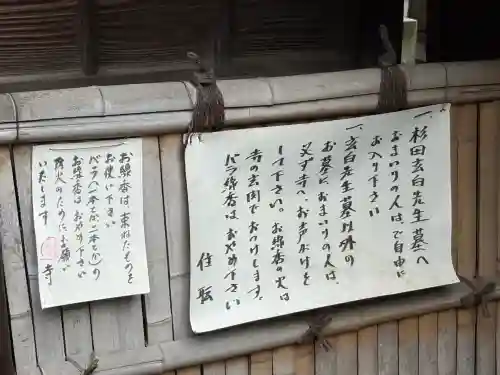 一、杉田玄白先生墓へ
おまいりの人は、ご自由に
お入り下さい
一、玄白先生墓以外の
お墓におまいりの人は、
必ず寺へ、お声がけを
して下さい。お線香の火は
寺の玄関でおつけします。
バラ線香は、おやめ下さい
住職
お線香は、束ねたものを
お使い下さい
バラ(一本とか二本とか)の
お線香はおやめ下さい
防火のためにお願い
いたします
寺